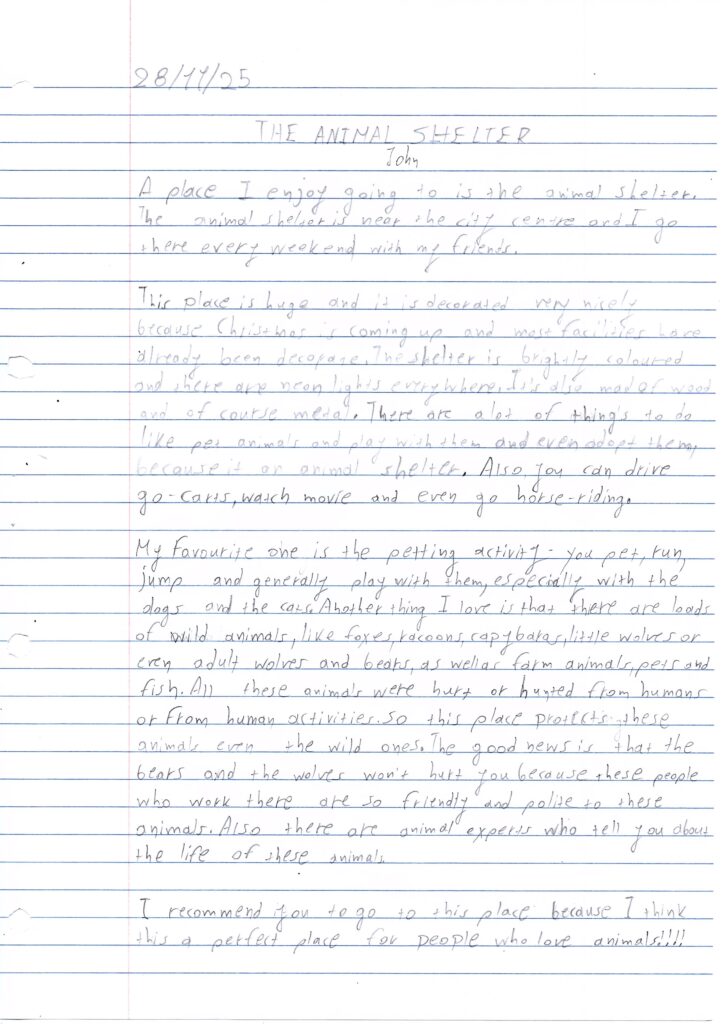 28/11/25
THE ANIMAL SHELTER
John
A place I enjoy going to is the animal shelter.
The animal shelter is near the city centre and I go
there every weekend with my friends.
This place is huge and it is decorated very nicely
because Christmas is coming up and most facilities have
already been decorate. The shelter is brightly coloured
and there are neon lights everywhere. It's also mad of wood
and of course metal. There are alot of thing's to do
like pet animals and play with them and even adopt them,
because it an animal shelter. Also you can drive
go-carts, watch movie and even go horse-riding.
My favourite one is the petting activity - you pet, run,
jump and generally play with them, especially with the
dogs and the cats. Another thing I love is that there are loads
of wild animals, like foxes, racoons, capybaras, little wolves or
even adult wolves and bears, as well as farm animals, pets and
fish. All these animals were hurt or hunted from humans
or from human activities. So this place protects these
animals even the wild ones. The good news is that the
bears and the wolves won't hurt you because these people
who work there are so friendly and polite to these
animals. Also there are animal experts who tell you about
the life of these animals.
I recommend you to go to this place because I think
this a perfect place for people who love animals!!!!